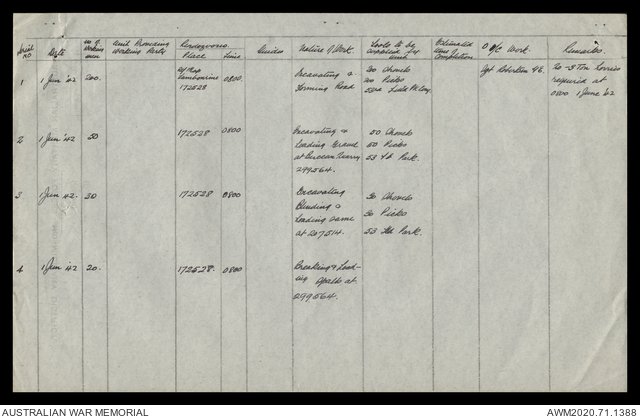 Serial No
Date
No of Working men
Unit Providing Working Party
Rendezvous
Place
Time
Guides
Nature of Work
Tools to be supplied by unit
Estimated time Completion
O i/c Work
Remarks
1
1 Jun '42
200
Ref Map Tambourine 172528
0800
Excavating & Forming Road
200 Shovels
20 Picks
Sgt Robertson
20 - 3 Ton lorries required at 0800 1 June '42
2
1 Jun '42
50
172528
0800
Excavating & Loading Gravel at 299564.
50 Shovels
50 Picks
53 Fd. Park.
3
1 Jun '42.
30
172528
0800
Excavating & Loading same at 207514.
30 Shovels
30 Picks
53 Fd Park.
4
1 Jun '42
20.
172528.
0800
Breaking & Loading Spalls at 299564.
AUSTRALIAN WAR MEMORIAL
AWM2020.71.1388